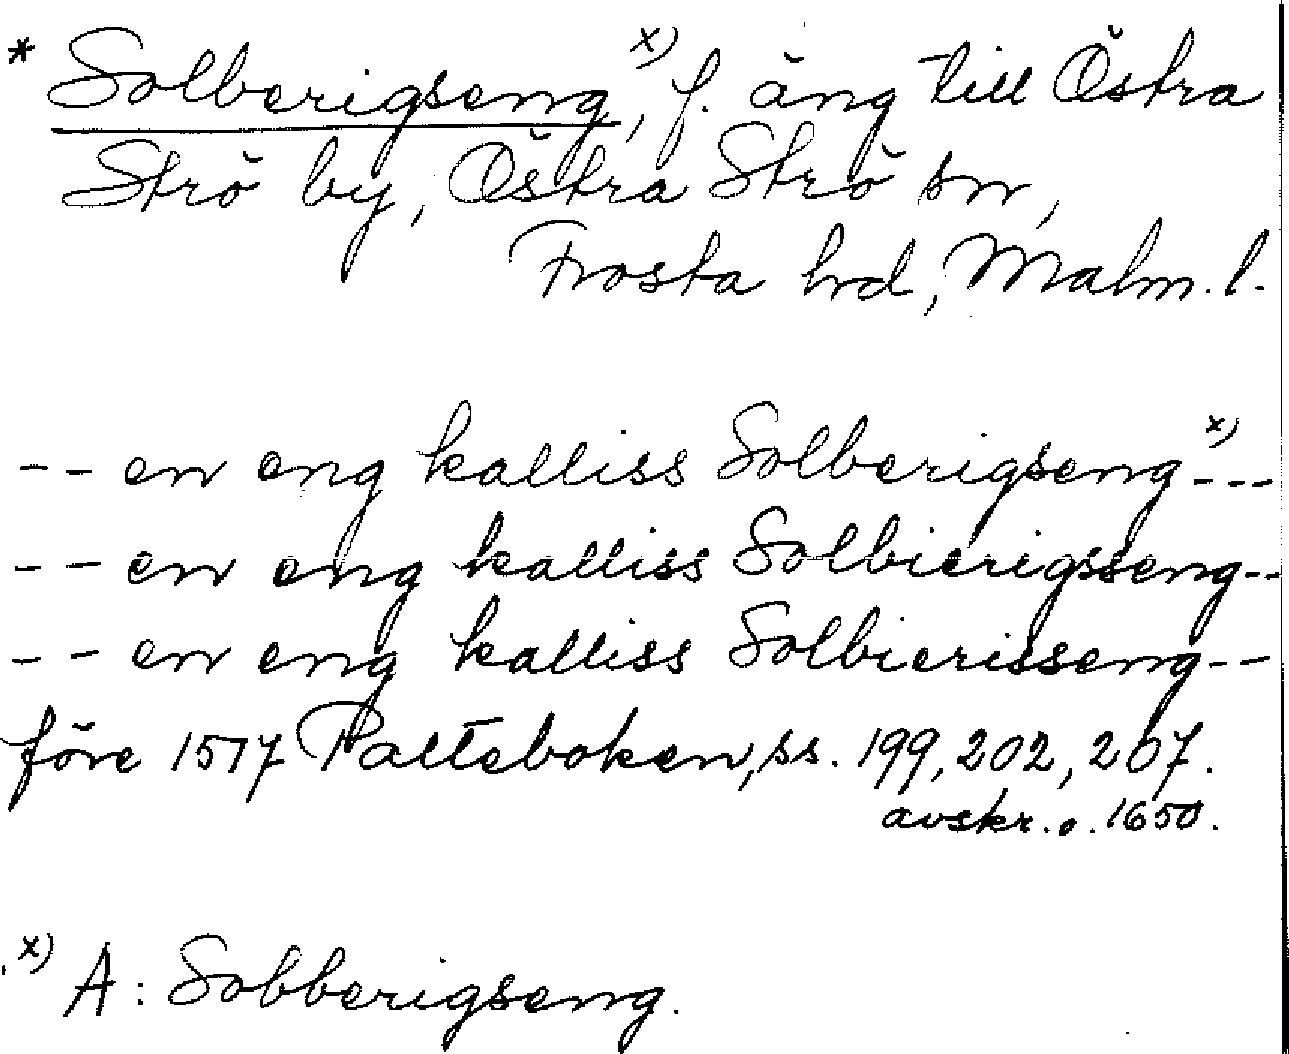 * Solberigseng,x) f. äng till Östra
Strö by, Östra Strö sn,
Frosta hrd, Malm. l.
-- en eng kalliss Solberigsengx)---
-- en eng kalliss Solbierigsseng--
-- en eng kalliss Solbierisseng--
före 1517 Palteboken, ss. 199, 202, 207.
avskr. o. 1650.
x) A: Sobberigseng.